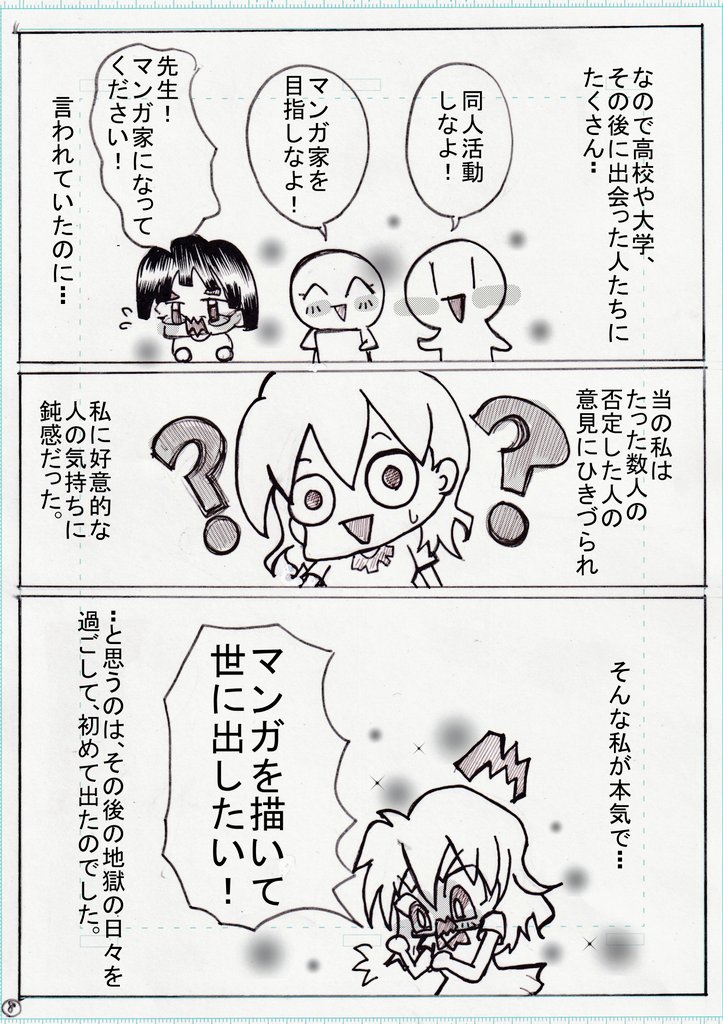 なので高校や大学、
その後に出会った人たちに
たくさん…
同人活動
しなよ！
マンガ家を
目指しなよ！
先生！
マンガ家になって
ください！
言われていたのに…
当の私は
たった数人の
否定した人の
意見にひきづられ
私に好意的な
人の気持ちに
鈍感だった。
そんな私が本気で…
マンガを描いて
世に出したい！
…と思うのは、その後の地獄の日々を
過ごして、初めて出たのでした。
8